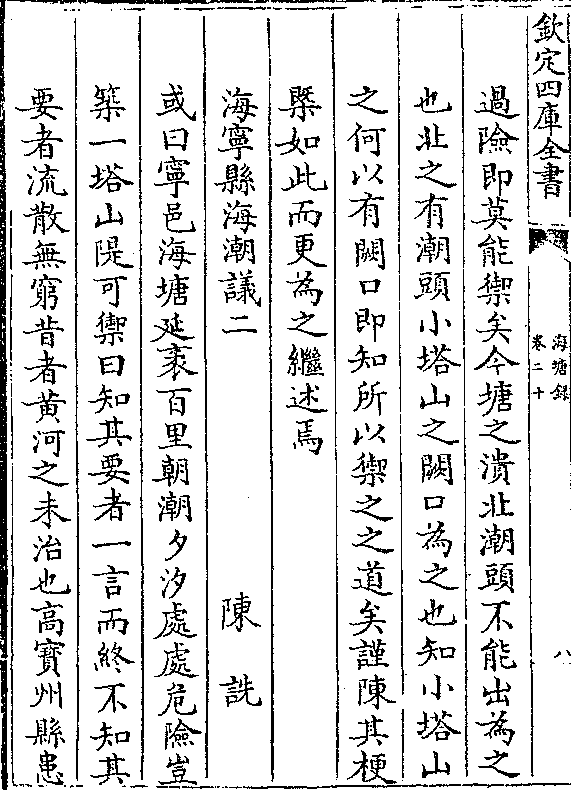 欽定四庫全書
海塘錄
卷二十
八
過險即莫能禦矣今塘之潰北潮頭不能出為之
也北之有潮頭小塔山之闕口為之也知小塔山
之何以有闕口即知所以禦之之道矣謹陳其梗
槩如此而更為之繼述焉
海寧縣海潮議二　陳詵
或曰寧邑海塘延袤百里朝潮夕汐處處危險豈
築一塔山隄可禦曰知其要者一言而終不知其
要者流散無窮昔者黄河之未治也高寳州縣患